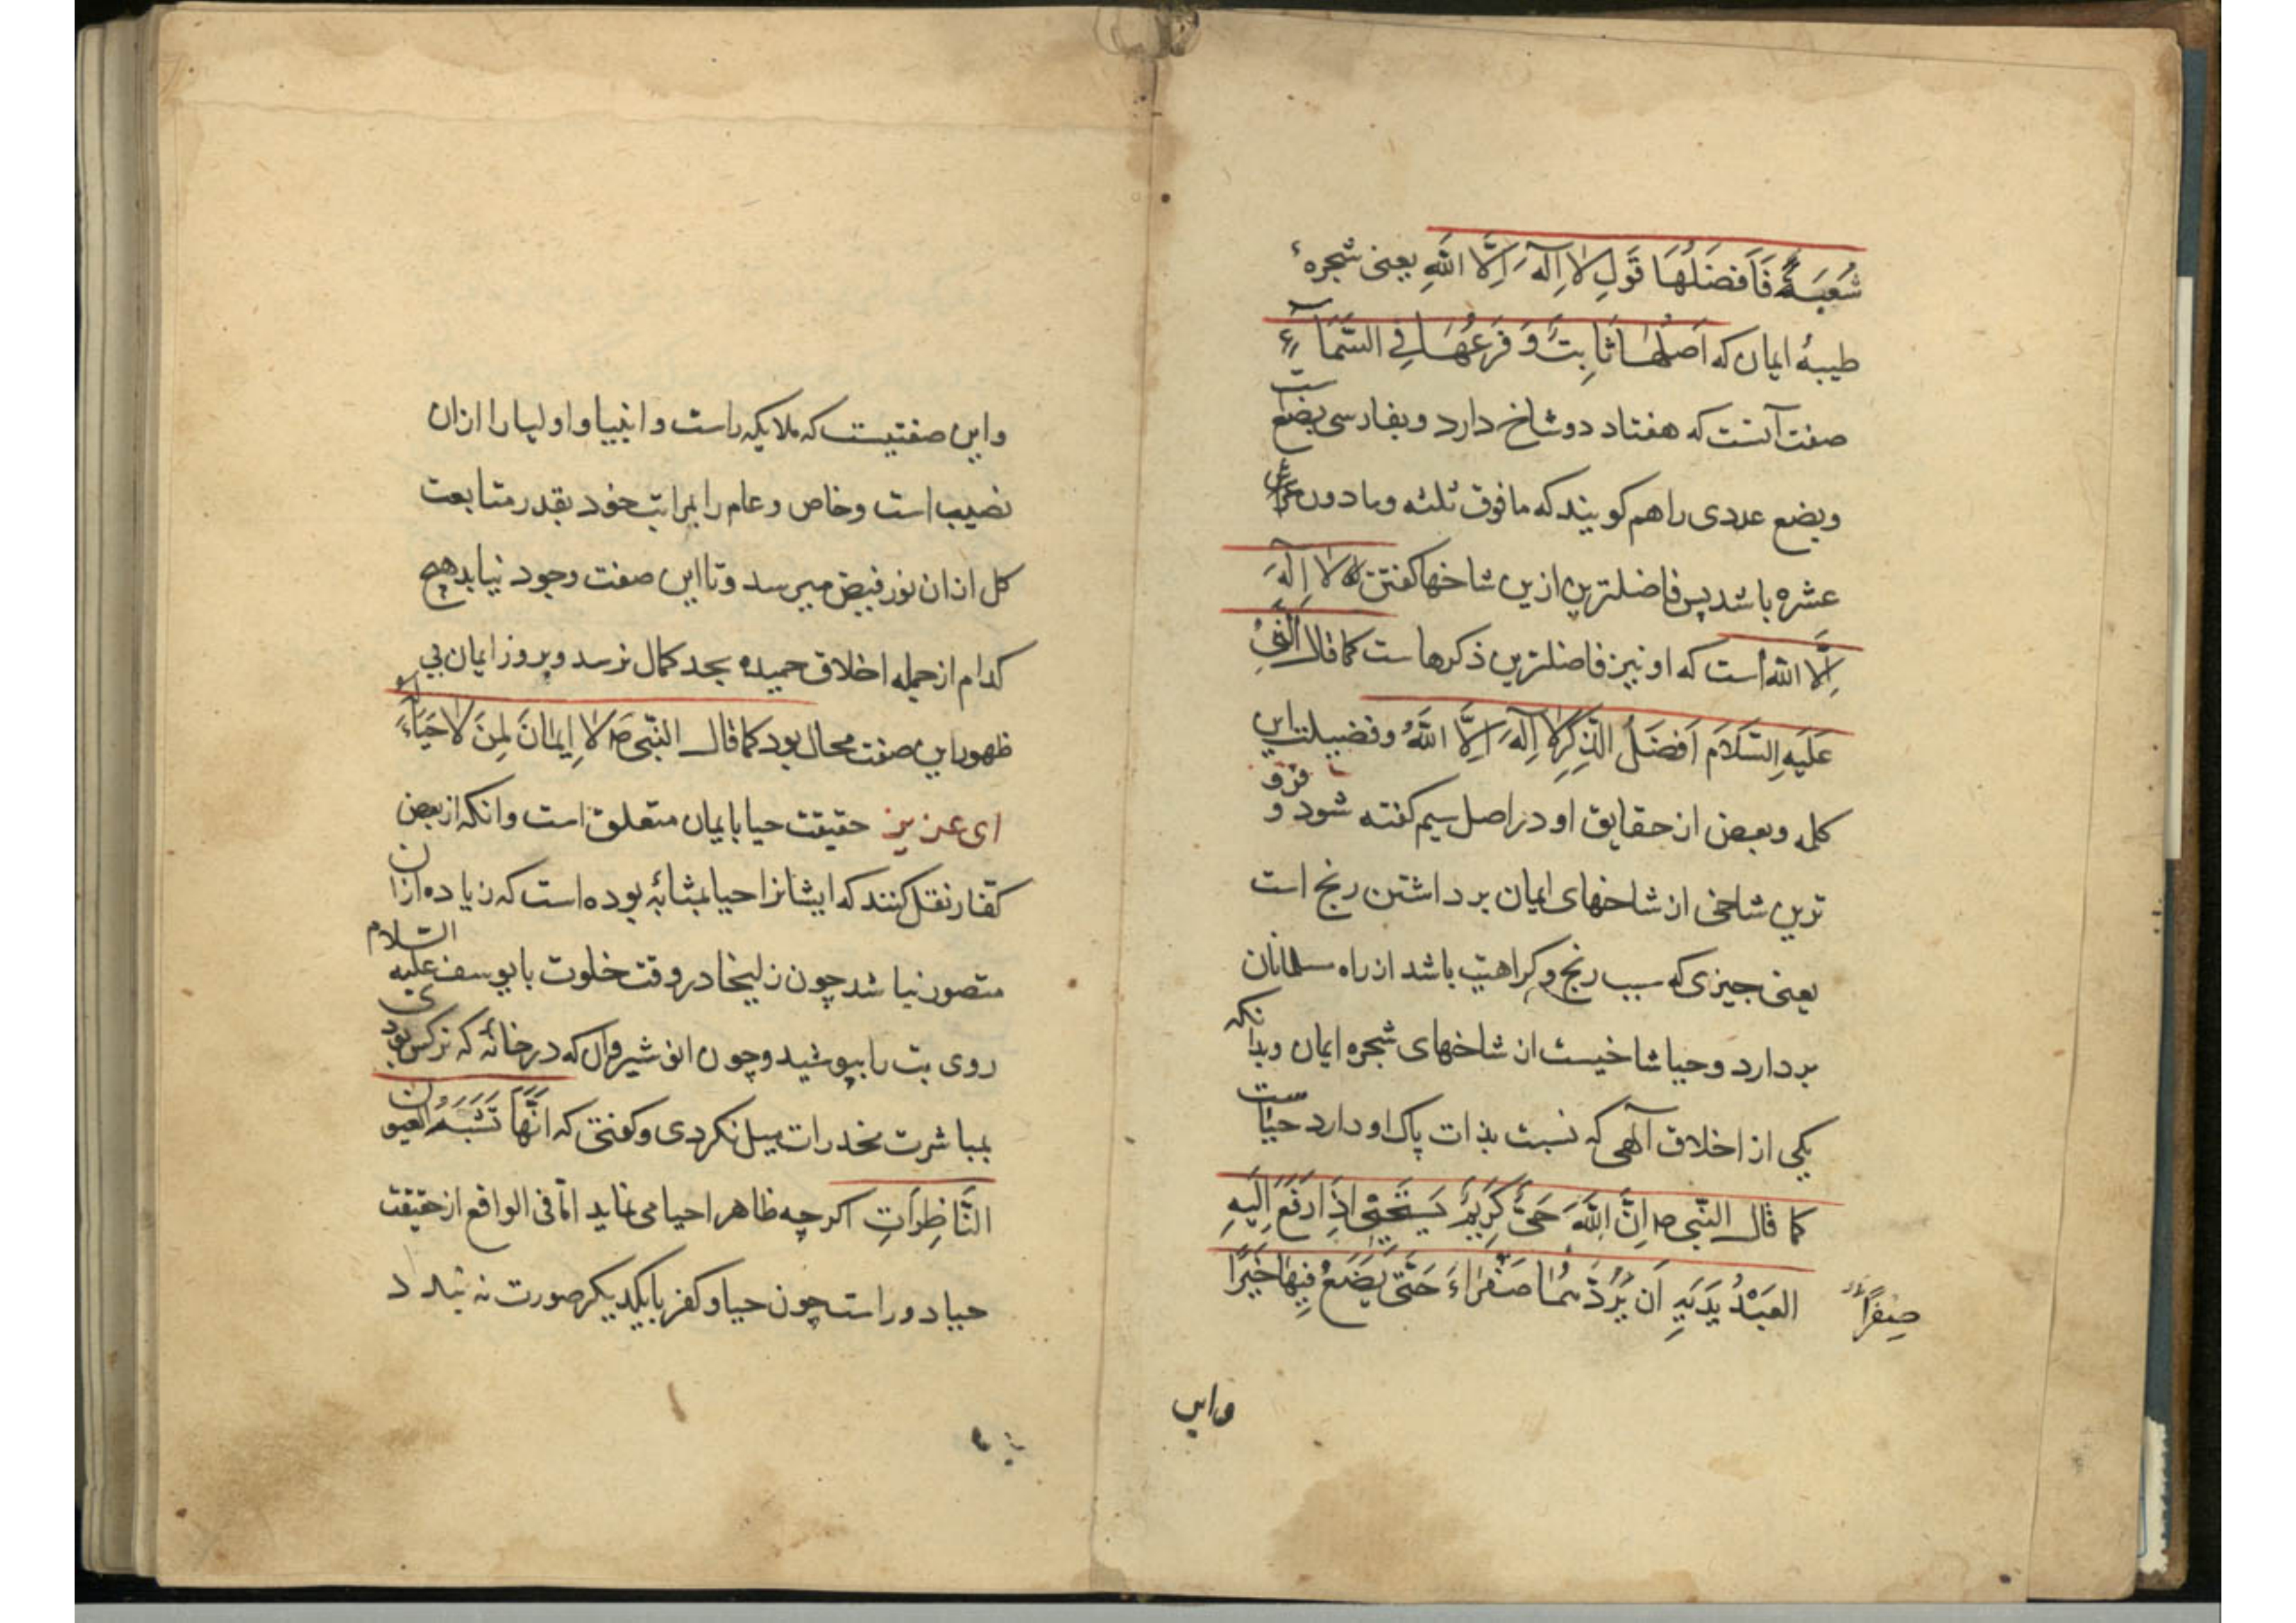 شُعبَةً فَاَفضَلُهَا قَولِ لا اِلٰهَ اِلَّا اللهِ یعنی شجرهٔ
طیبهٔ ایمان که اَصلُهَا ثَابِتٌ وَ فَرعُهَا فِی السَّمَآءِ
صفت آنست که هفتاد دو شاخ دارد و بفارسی بضع ست
و بضع عددی را هم کویند که ما فوق ثلثه و ما دون
عشره باشد پس فاضلترین ازین شاخها کفتن لا اِلٰهَ
اِلَّا الله است که او نیز فاضلترین ذکرهاست کما قال النَّبِیُّ
عَلَیهِ السَّلَام اَفضَلُ الذِّکرِ لا اِلٰهَ اِلَّا اللهُ و فضیلت این
کلمه و بعض از حقایق او در اصل سیم کفته شود و فرو
ترین شاخی از شاخهای ایمان برداشتن رنج است
یعنی جیزی که سبب رنج و کراهیت باشد از راه مسلمانان
بردارد و حیا شاخیست از شاخهای شجره ایمان و بدانکه
یکی از اخلاق آلهی که نسبت بذات پاک او دارد حیاست
کما قال النّبی ص اِنَّ اللهَ حَیٌّ کَرِیمٌ یَستَحیِی اِذَا رَفَعَ اِلَیهِ
العَبدُ یَدَیهِ اَن یَرُدَّهُمَا صَفرَاءَ حَتّٰی یَضَعُ فِیهَا خَیرًا
صِفرًا
و این
و این صفتیست که ملایکه راست و انبیا و اولیا را ازان
نصیب است و خاص و عام را بمراتب خود بقدر متابعت
کل ازان نور فیض میرسد و تا این صفت وجود نیابد هیچ
کدام از جمله اخلاق حمیده بحد کمال نرسد و بروز ایمان بی
ظهور این صفت محال بود کما قال النّبی ص لا اِیمَانَ لِمَن لا حَیَاءَ لَه
ای عزیز حقیقت حیا بایمان متعلق است و انکه از بعض
کفّار نقل کنند که ایشانرا حیا بمثابهٔ بوده است که زیاده ازان
متصور نباشد چون زلیخا در وقت خلوت با یوسف علیه السّلام
روی بت را بپوشید و چون انوشیروان که در خانهٔ که نرکس بودی
بمباشرت مخدرات میل نکردی و کفتی که اِنَّهَا تَشبَهُ العیون
النَّاظِرَاتِ اکرچه ظاهرا حیا می نماید امّا فی الواقع از حقیقت
حیا دور است چون حیا و کفر با یکدیکر صورت نه بندد